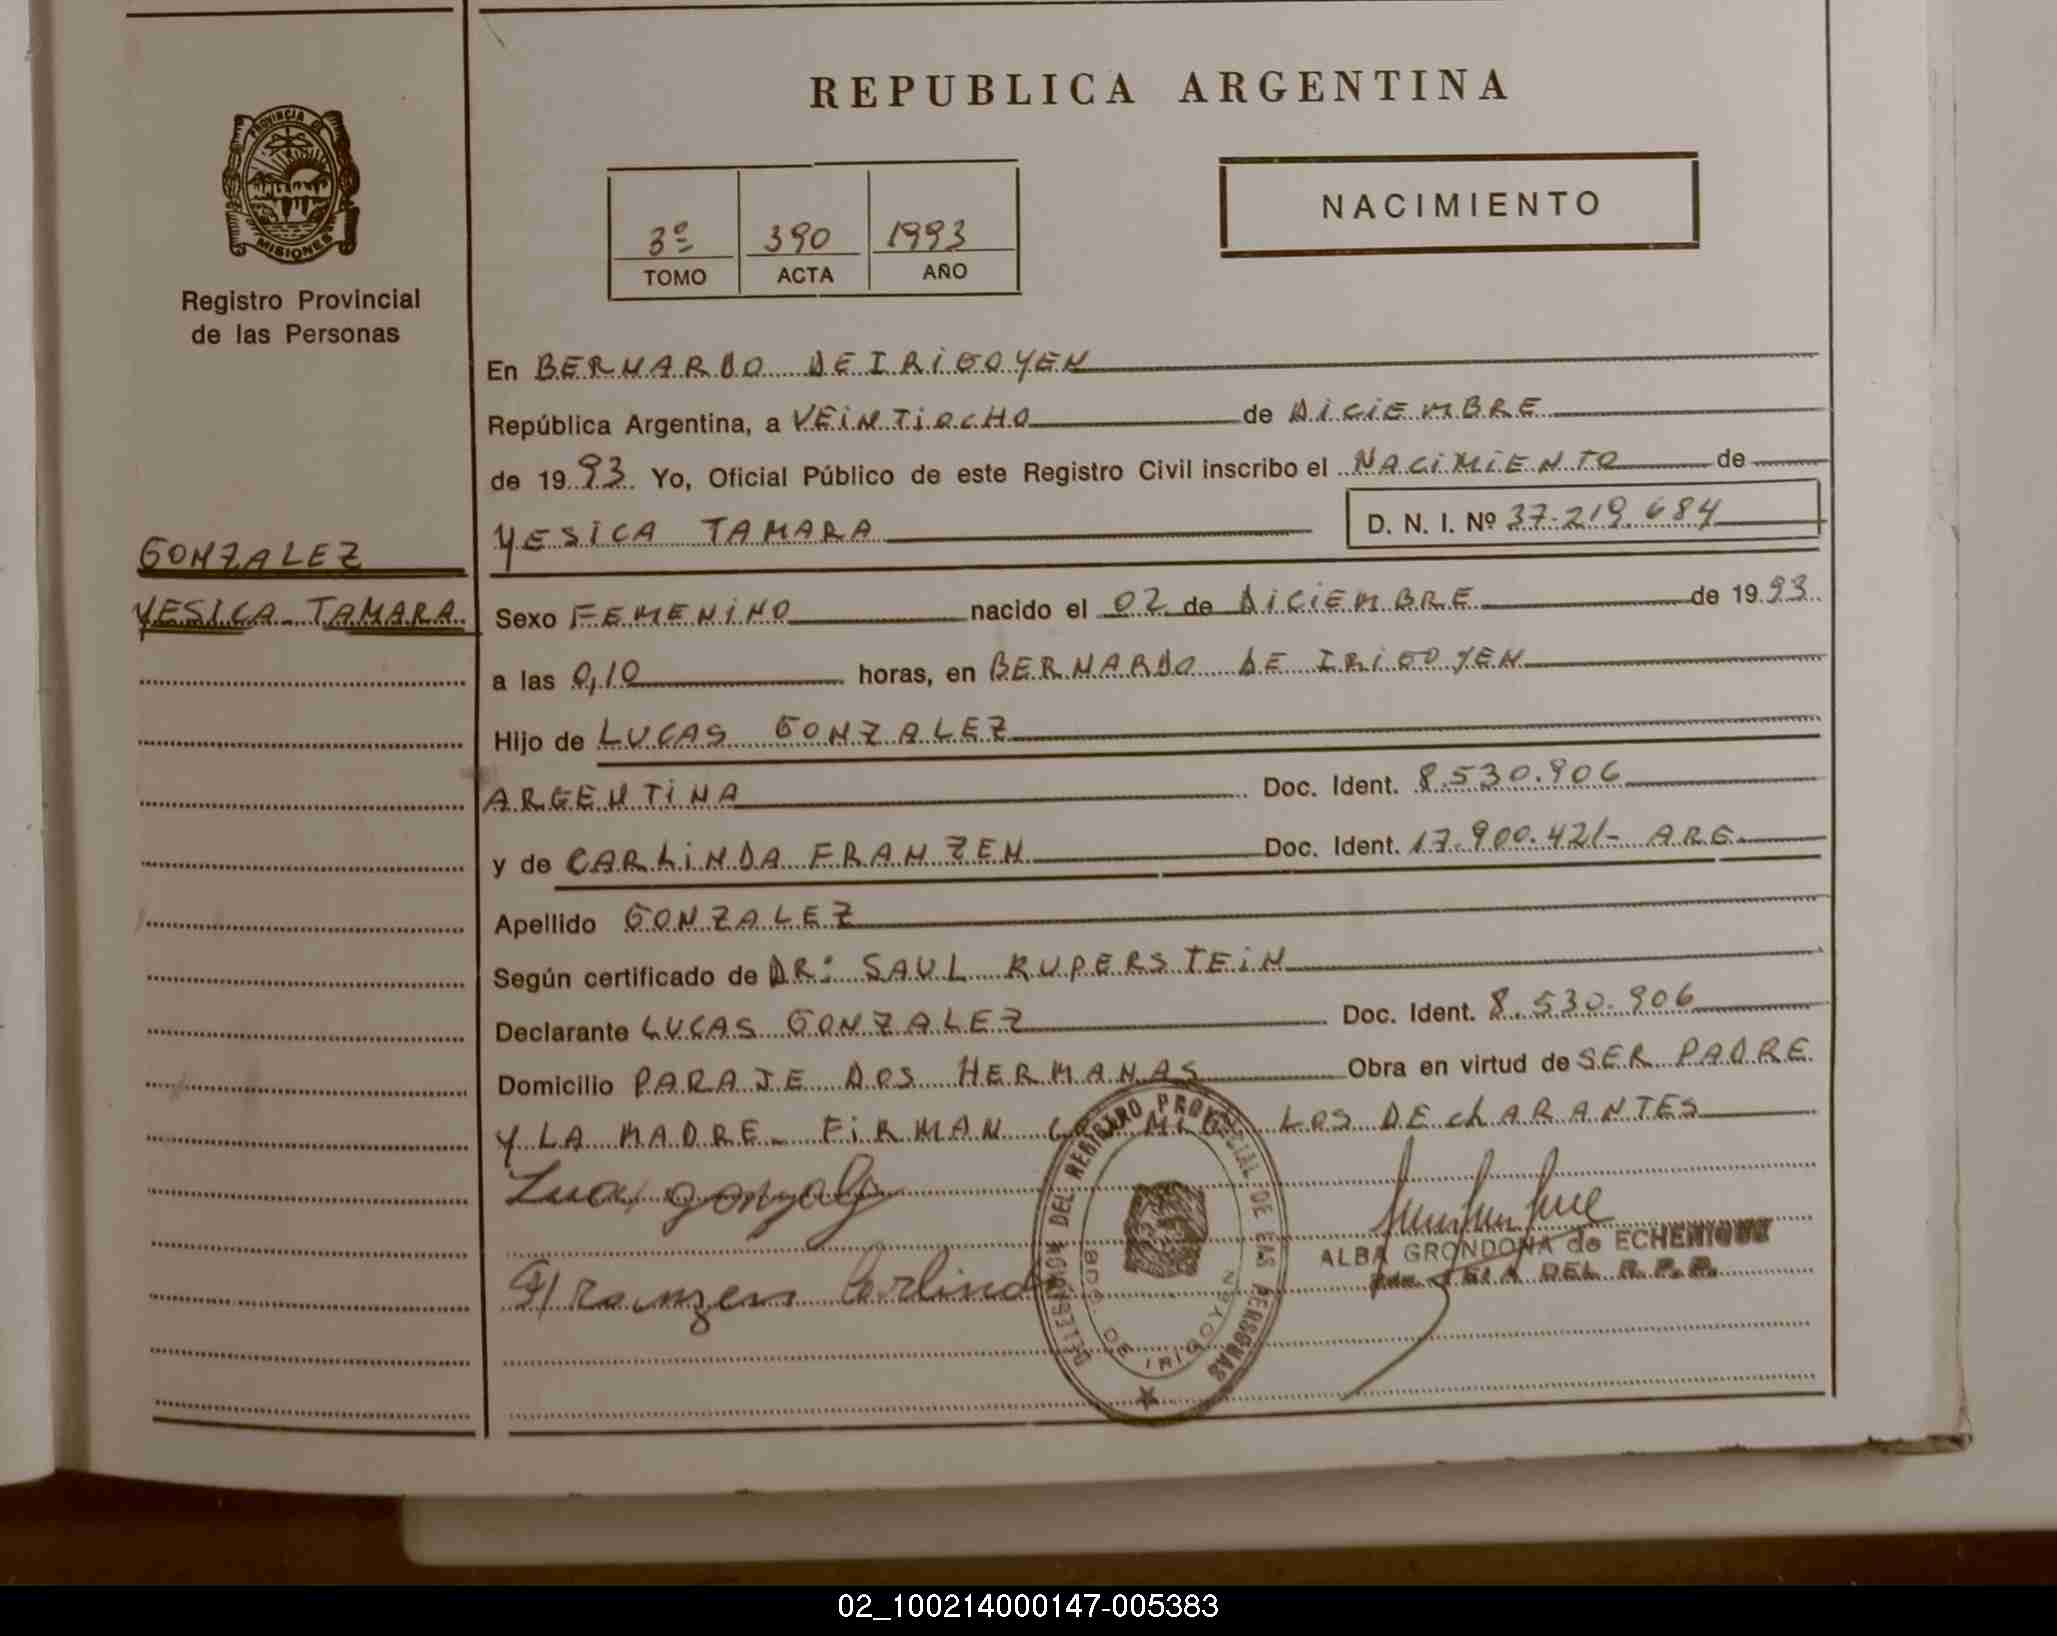 REPUBLICA ARGENTINA
PROVINCIA DE
MISIONES
Registro Provincial
de las Personas
3º 390 1993
TOMO ACTA AÑO
NACIMIENTO
En BERNARDO DE IRIGOYEN
República Argentina, a VEINTIOCHO de DICIEMBRE
de 1993 Yo, Oficial Público de este Registro Civil inscribo el NACIMIENTO de
YESICA TAMARA D. N. I. Nº 37.219.684
GONZALEZ
YESICA TAMARA
Sexo FEMENINO nacido el 02 de DICIEMBRE de 1993
a las 0,10 horas, en BERNARDO DE IRIGOYEN
Hijo de LUCAS GONZALEZ
ARGENTINA Doc. Ident. 8.530.906
y de CARLINDA FRANZEN Doc. Ident. 17.900.421- ARG.
Apellido GONZALEZ
Según certificado de DR: SAUL KUPERSTEIN
Declarante LUCAS GONZALEZ Doc. Ident. 8.530.906
Domicilio PARAJE DOS HERMANAS Obra en virtud de SER PADRE
Y LA MADRE. FIRMAN LOS DECLARANTES
DELEGACION DEL REGISTRO PROVINCIAL DE LAS PERSONAS
BDO. DE IRIGOYEN
Lucas gonzalez
Franzen Carlinda
ALBA GRONDONA de ECHENIQUE
DEL R.P.P.
02_100214000147-005383